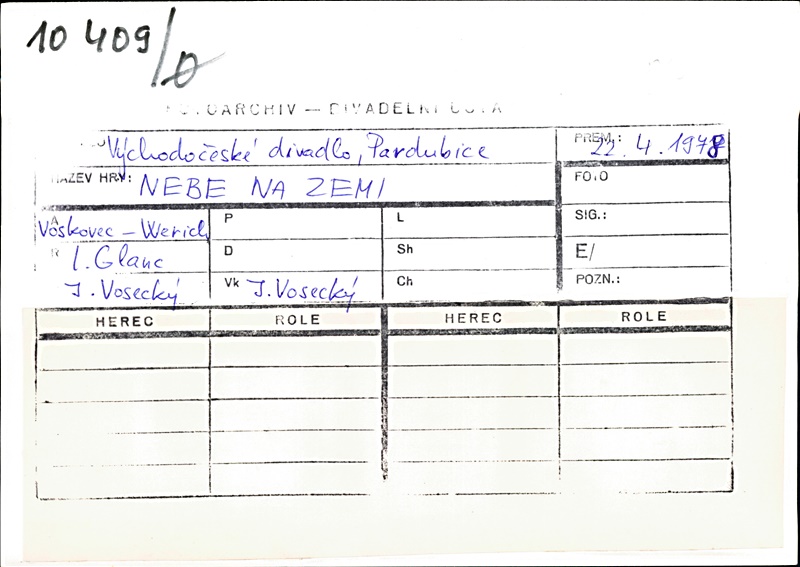 10 409/0
FOTOARCHIV – DIVADELNÍ ÚSTAV
Východočeské divadlo, Pardubice PREM.: 22. 4. 1978
NÁZEV HRY: NEBE NA ZEMI FOTO
A Voskovec – Werich P L SIG.:
R I. Glanc D Sh E/
J. Vosecký Vk J. Vosecký Ch POZN.:
HEREC ROLE HEREC ROLE